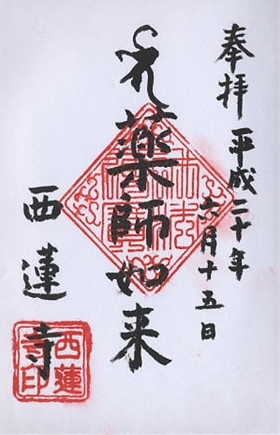 奉拝 平成二十年
六月十五日
薬師如来
西蓮寺
西蓮
寺印